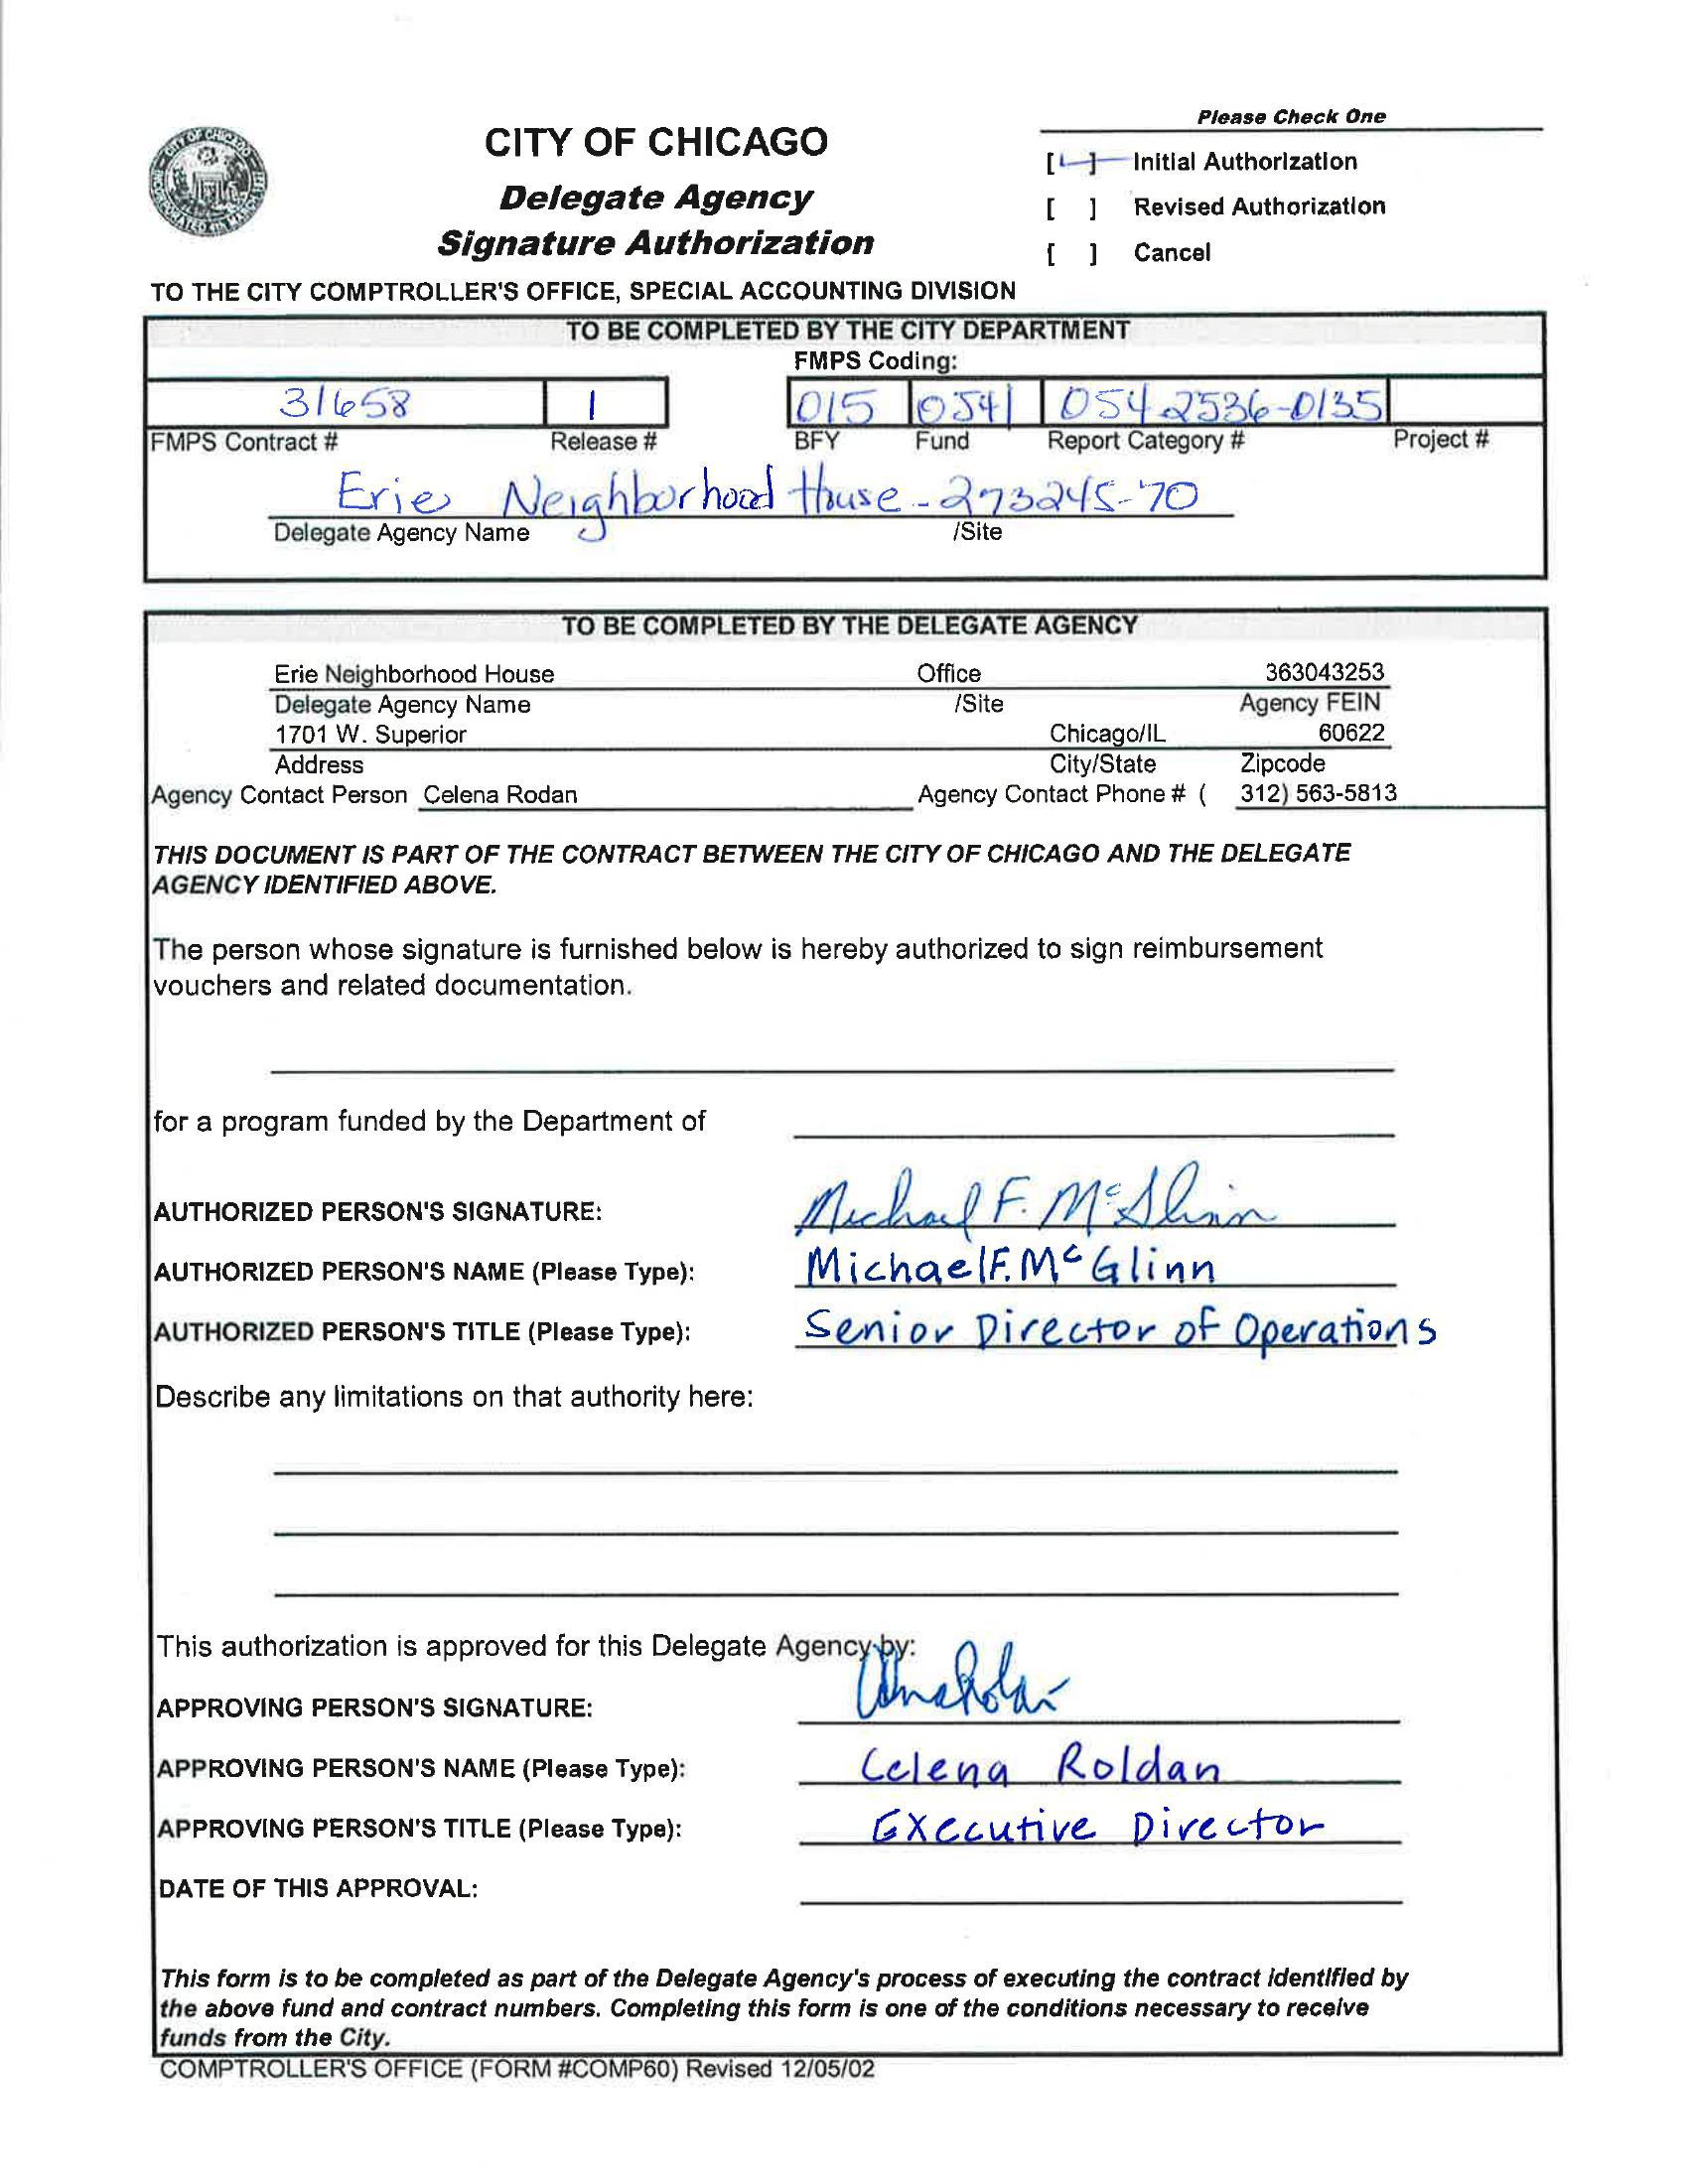 Please Check One
CITY OF CHICAGO
Delegate Agency
Signature Authorization
[✓] Initial Authorization
[ ] Revised Authorization
[ ] Cancel
TO THE CITY COMPTROLLER'S OFFICE, SPECIAL ACCOUNTING DIVISION
TO BE COMPLETED BY THE CITY DEPARTMENT
FMPS Coding:
31658 1 015 0541 054-2536-0135
FMPS Contract # Release # BFY Fund Report Category # Project #
Erie Neighborhood House - 273245-70
Delegate Agency Name /Site
TO BE COMPLETED BY THE DELEGATE AGENCY
Erie Neighborhood House Office 363043253
Delegate Agency Name /Site Agency FEIN
1701 W. Superior Chicago/IL 60622
Address City/State Zipcode
Agency Contact Person Celena Rodan Agency Contact Phone # ( 312) 563-5813
THIS DOCUMENT IS PART OF THE CONTRACT BETWEEN THE CITY OF CHICAGO AND THE DELEGATE
AGENCY IDENTIFIED ABOVE.
The person whose signature is furnished below is hereby authorized to sign reimbursement
vouchers and related documentation.
for a program funded by the Department of
AUTHORIZED PERSON'S SIGNATURE: Michael F. McGlinn
AUTHORIZED PERSON'S NAME (Please Type): Michael F. McGlinn
AUTHORIZED PERSON'S TITLE (Please Type): Senior Director of Operations
Describe any limitations on that authority here:
This authorization is approved for this Delegate Agency by:
APPROVING PERSON'S SIGNATURE:
APPROVING PERSON'S NAME (Please Type): Celena Roldan
APPROVING PERSON'S TITLE (Please Type): Executive Director
DATE OF THIS APPROVAL:
This form is to be completed as part of the Delegate Agency's process of executing the contract identified by
the above fund and contract numbers. Completing this form is one of the conditions necessary to receive
funds from the City.
COMPTROLLER'S OFFICE (FORM #COMP60) Revised 12/05/02